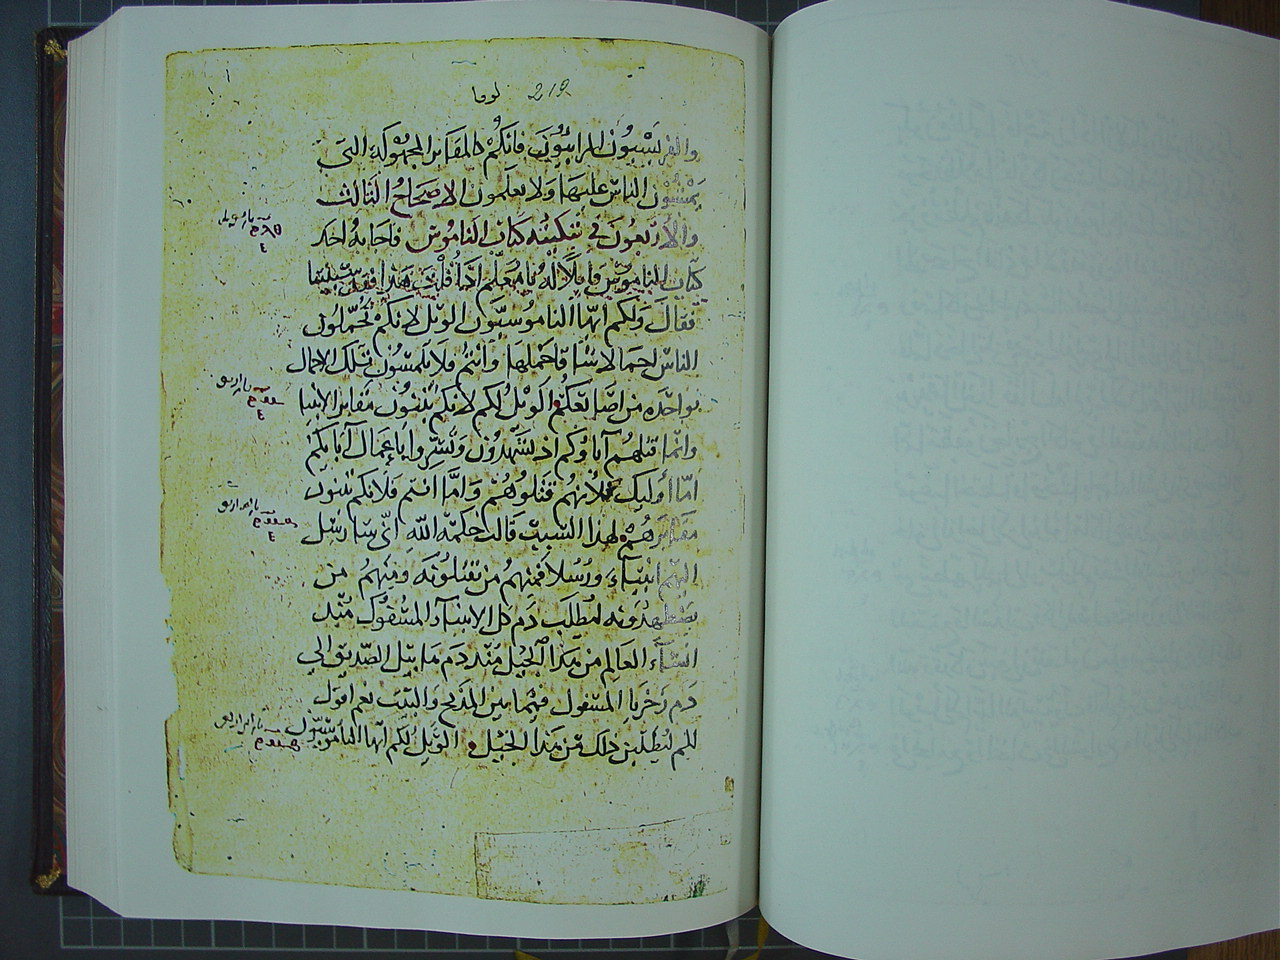 لوقا 219
والفريسيون المرايون فانكم كالمقابر المجهوكة التى
يمشون الناس عليها ولا يعلمون الاصحاح الثالث
والاربعون في تبكيته كتاب الناموس فاجابه احد
كتاب الناموس قايلا له يا معلم اذا قلت هذا فقد شتمتنا
فقال ولكم ايها الناموسيون الويل لانكم تحملون
الناس احمالا شاقا حملها وانتم فلا تلمسون تلك الاحمال
بواحده من اصابعكم الويل لكم لانكم تبنون مقابر الانبيا
وانما قتلهم آباوكم اذ تشهدون وتسروا باعمال آبايكم
اما اوليك فلانهم قتلوهم واما انتم فلانكم تبنون
مقابرهم لهذا السبب قالت حكمة الله انى سارسل
اليهم انبيآء ورسلا فمنهم من يقتلونه ومنهم من
يضطهدونه ليطلب دم كل الانبيآء المسفوك منذ
انشآء العالم من هذا الجيل منذ دم هابيل الصديق الى
دم زخريا المقتول فيما بين المذبح والبيت نعم اقول
لكم ليطلبن ذلك من هذا الجيل الويل لكم ايها الناموسيون